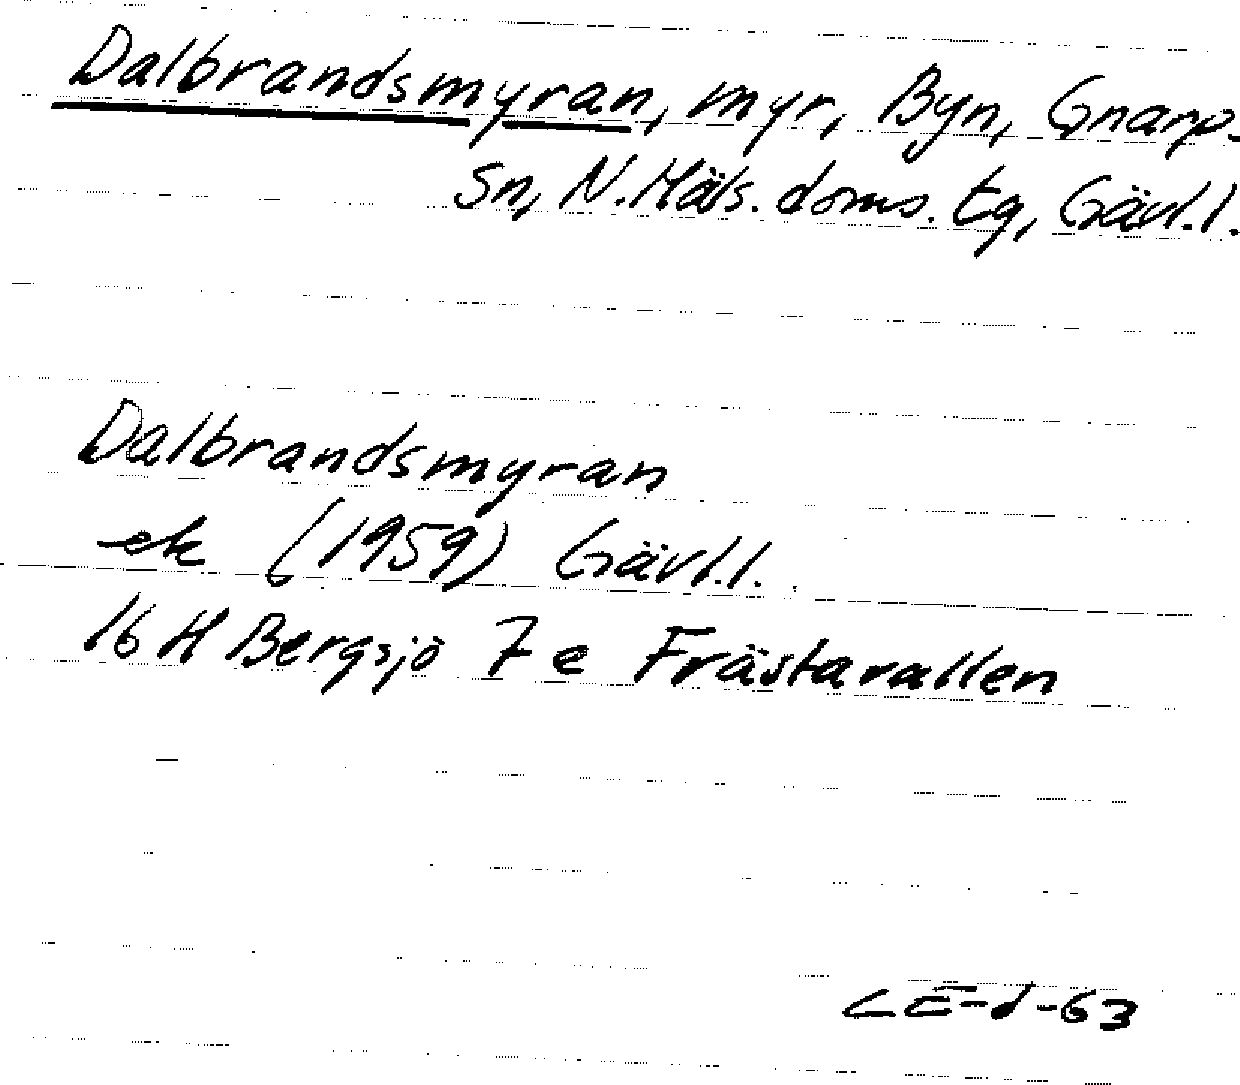 Dalbrandsmyran, myr, Byn, Gnarp.
Sn, N. Häls. doms. tg, Gävl.l.
Dalbrandsmyran
ek (1959) Gävl.l.
16 H Bergsjö 7 e Frästavallen
CE-d-63